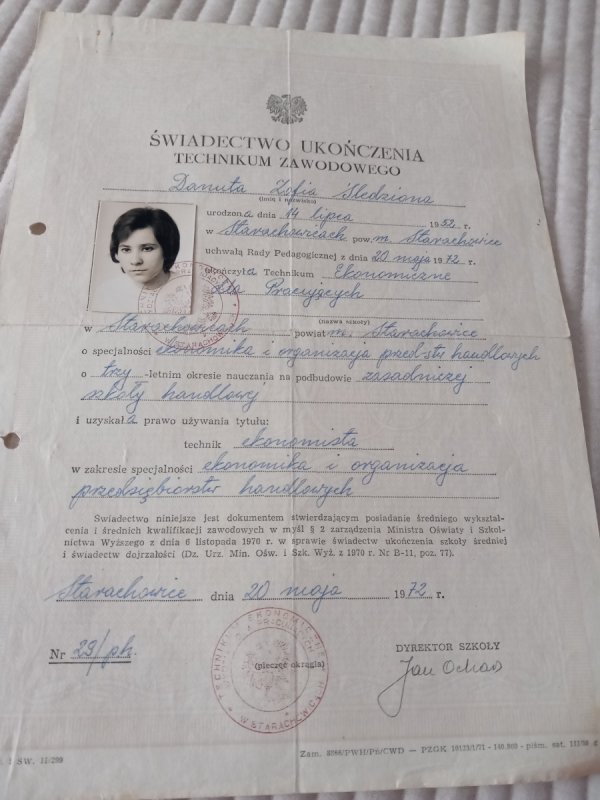 ŚWIADECTWO UKOŃCZENIA
TECHNIKUM ZAWODOWEGO
Danuta Zofia Śledziona
(imię i nazwisko)
urodzona dnia 14 lipca 1952 r.
w Starachowicach pow. m. Starachowice
uchwałą Rady Pedagogicznej z dnia 20 maja 1972 r.
ukończyła Technikum Ekonomiczne
dla Pracujących
(nazwa szkoły)
w Starachowicach powiat m. Starachowice
o specjalności ekonomika i organizacja przed-stw handlowych
o trzy -letnim okresie nauczania na podbudowie zasadniczej
szkoły handlowej
i uzyskała prawo używania tytułu:
technik ekonomista
w zakresie specjalności ekonomika i organizacja
przedsiębiorstw handlowych
Świadectwo niniejsze jest dokumentem stwierdzającym posiadanie średniego wykształ-
cenia i średnich kwalifikacji zawodowych w myśl § 2 zarządzenia Ministra Oświaty i Szkol-
nictwa Wyższego z dnia 6 listopada 1970 r. w sprawie świadectw ukończenia szkoły średniej
i świadectw dojrzałości (Dz. Urz. Min. Ośw. i Szk. Wyż. z 1970 r. Nr B-11, poz. 77).
Starachowice dnia 20 maja 1972 r.
Nr 29/ph.
(pieczęć okrągła)
TECHNIKUM EKONOMICZNE
W STARACHOWICACH
DYREKTOR SZKOŁY
Jan
SW. II/299
Zam. 8888/PWH/Pń/CWD — PZGK 10123/1/71 - 140.000 - piśm. sat. III/80 g